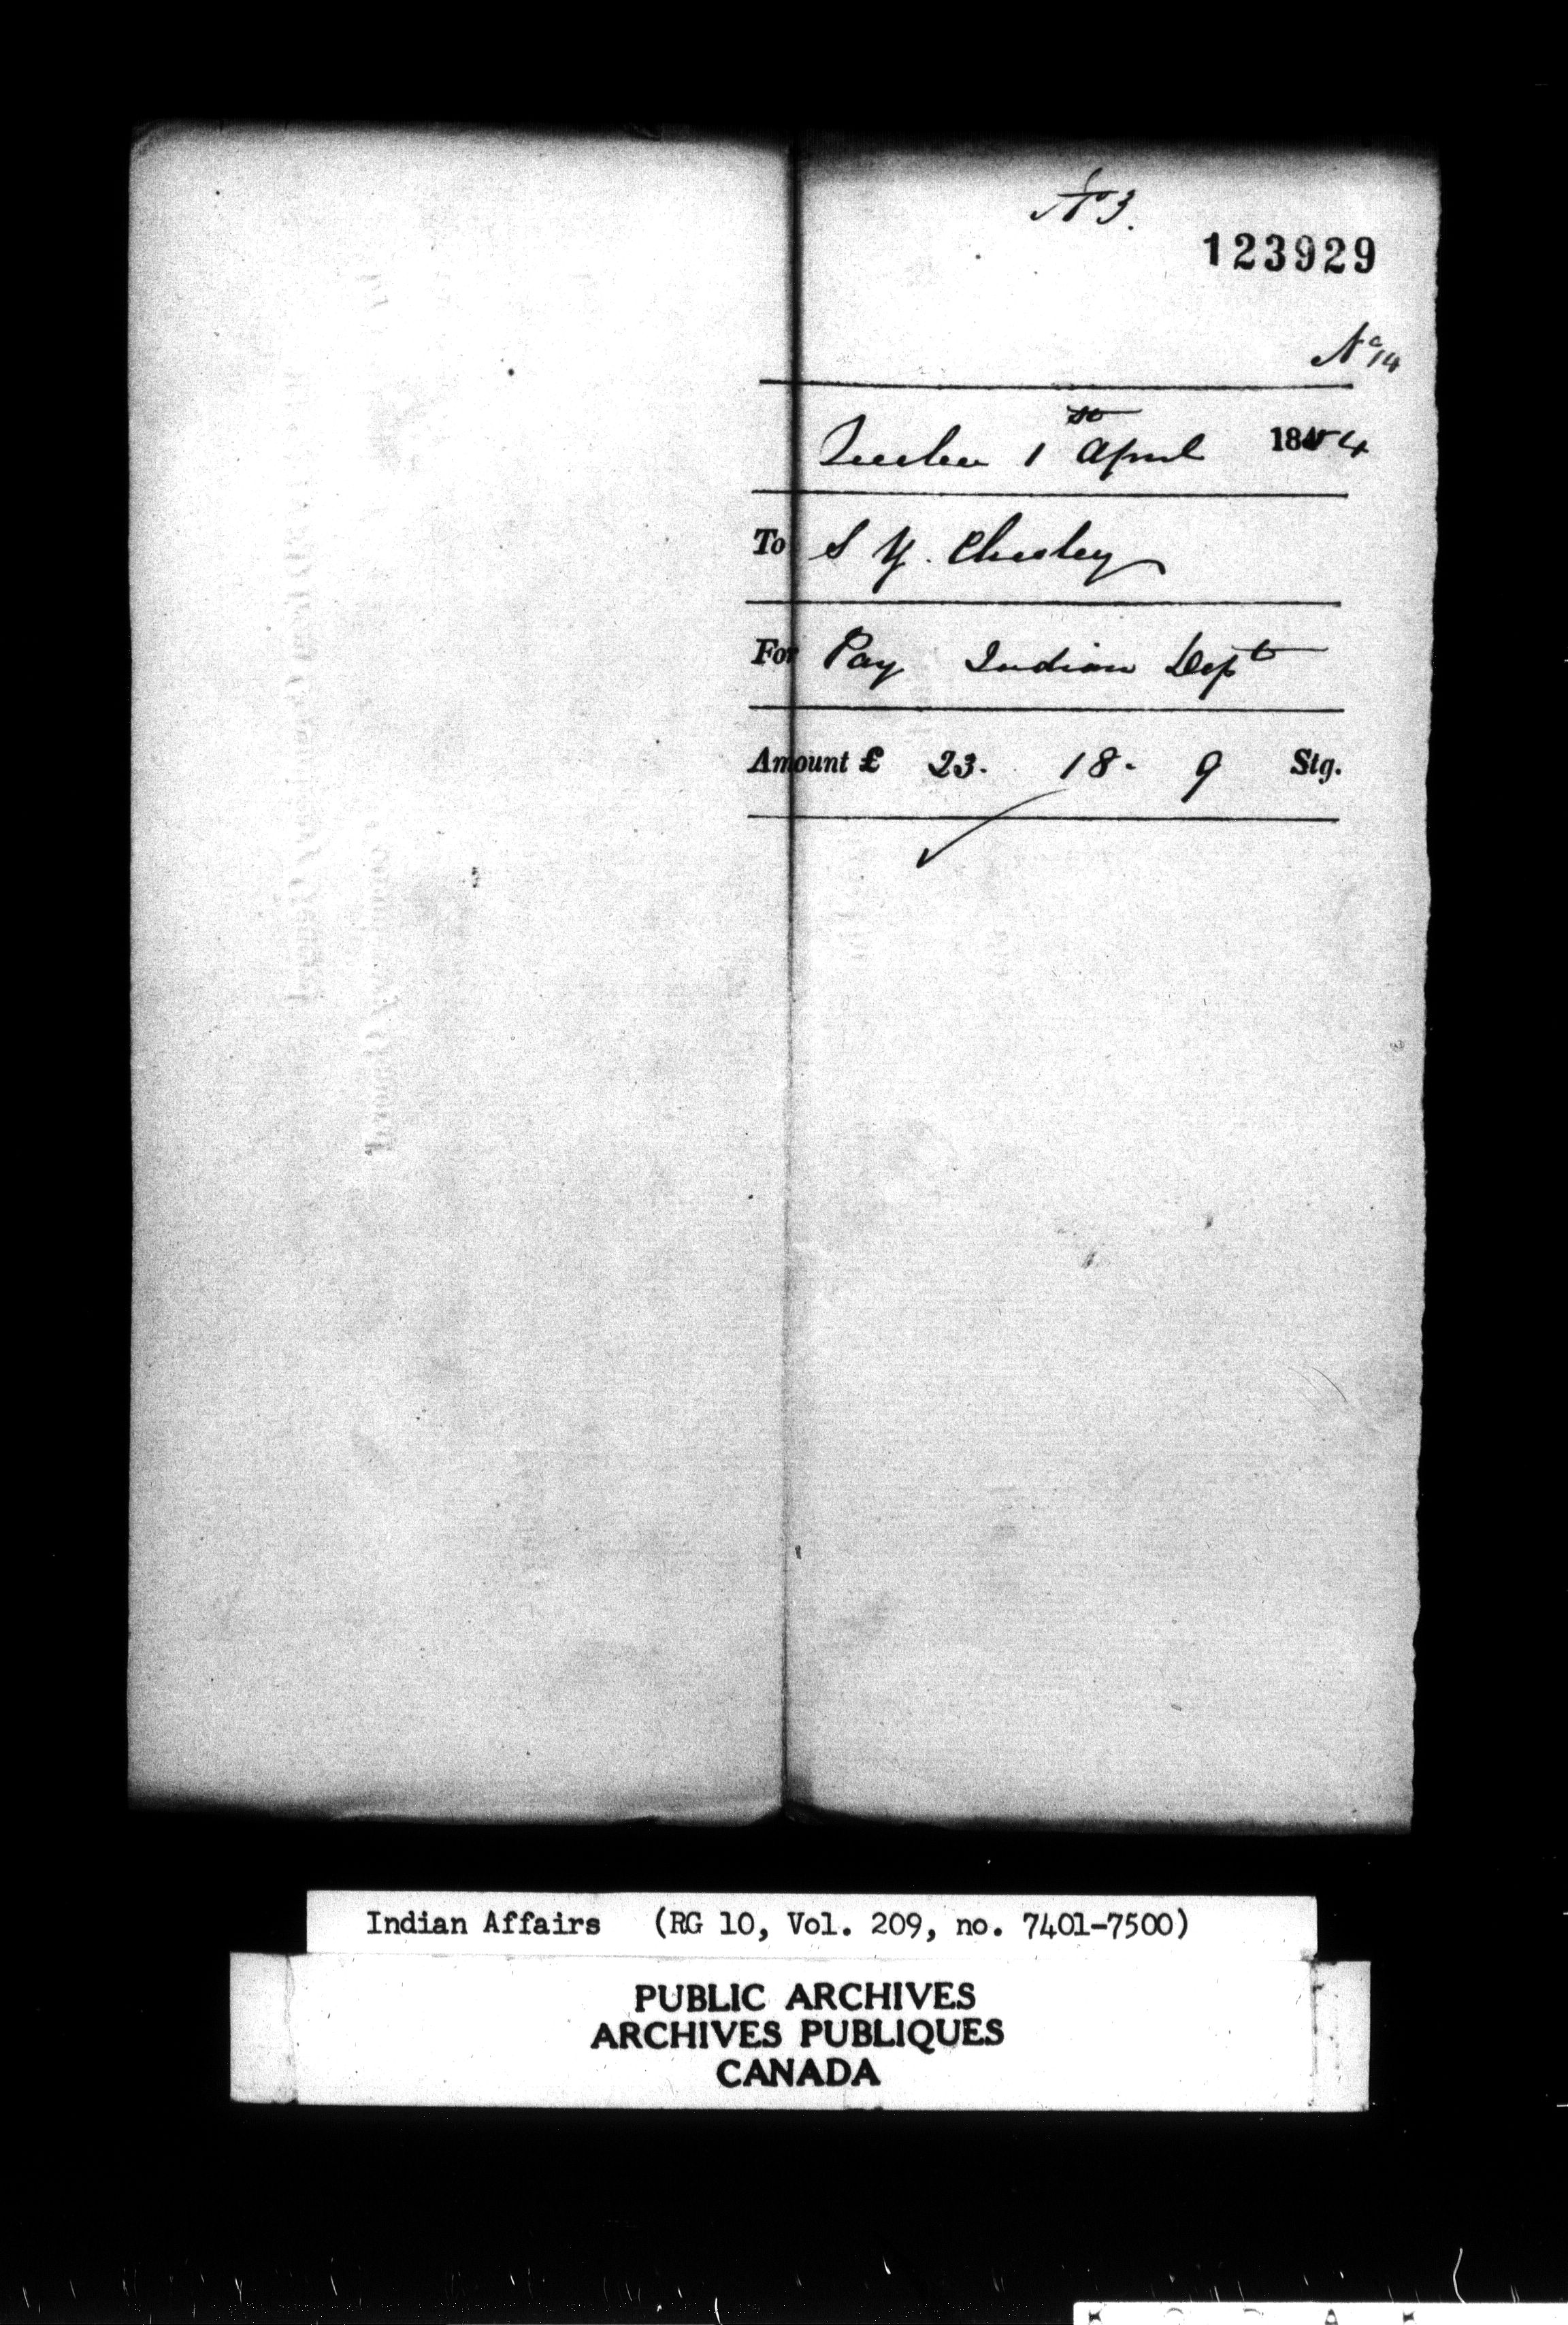 No 3.
123929
No 14
Quebec 1st April 1854
To S Y. Chesley
For Pay Indian Dept
Amount £ 23. 18. 9 Stg.
Indian Affairs (RG 10, Vol. 209, no. 7401-7500)
PUBLIC ARCHIVES
ARCHIVES PUBLIQUES
CANADA